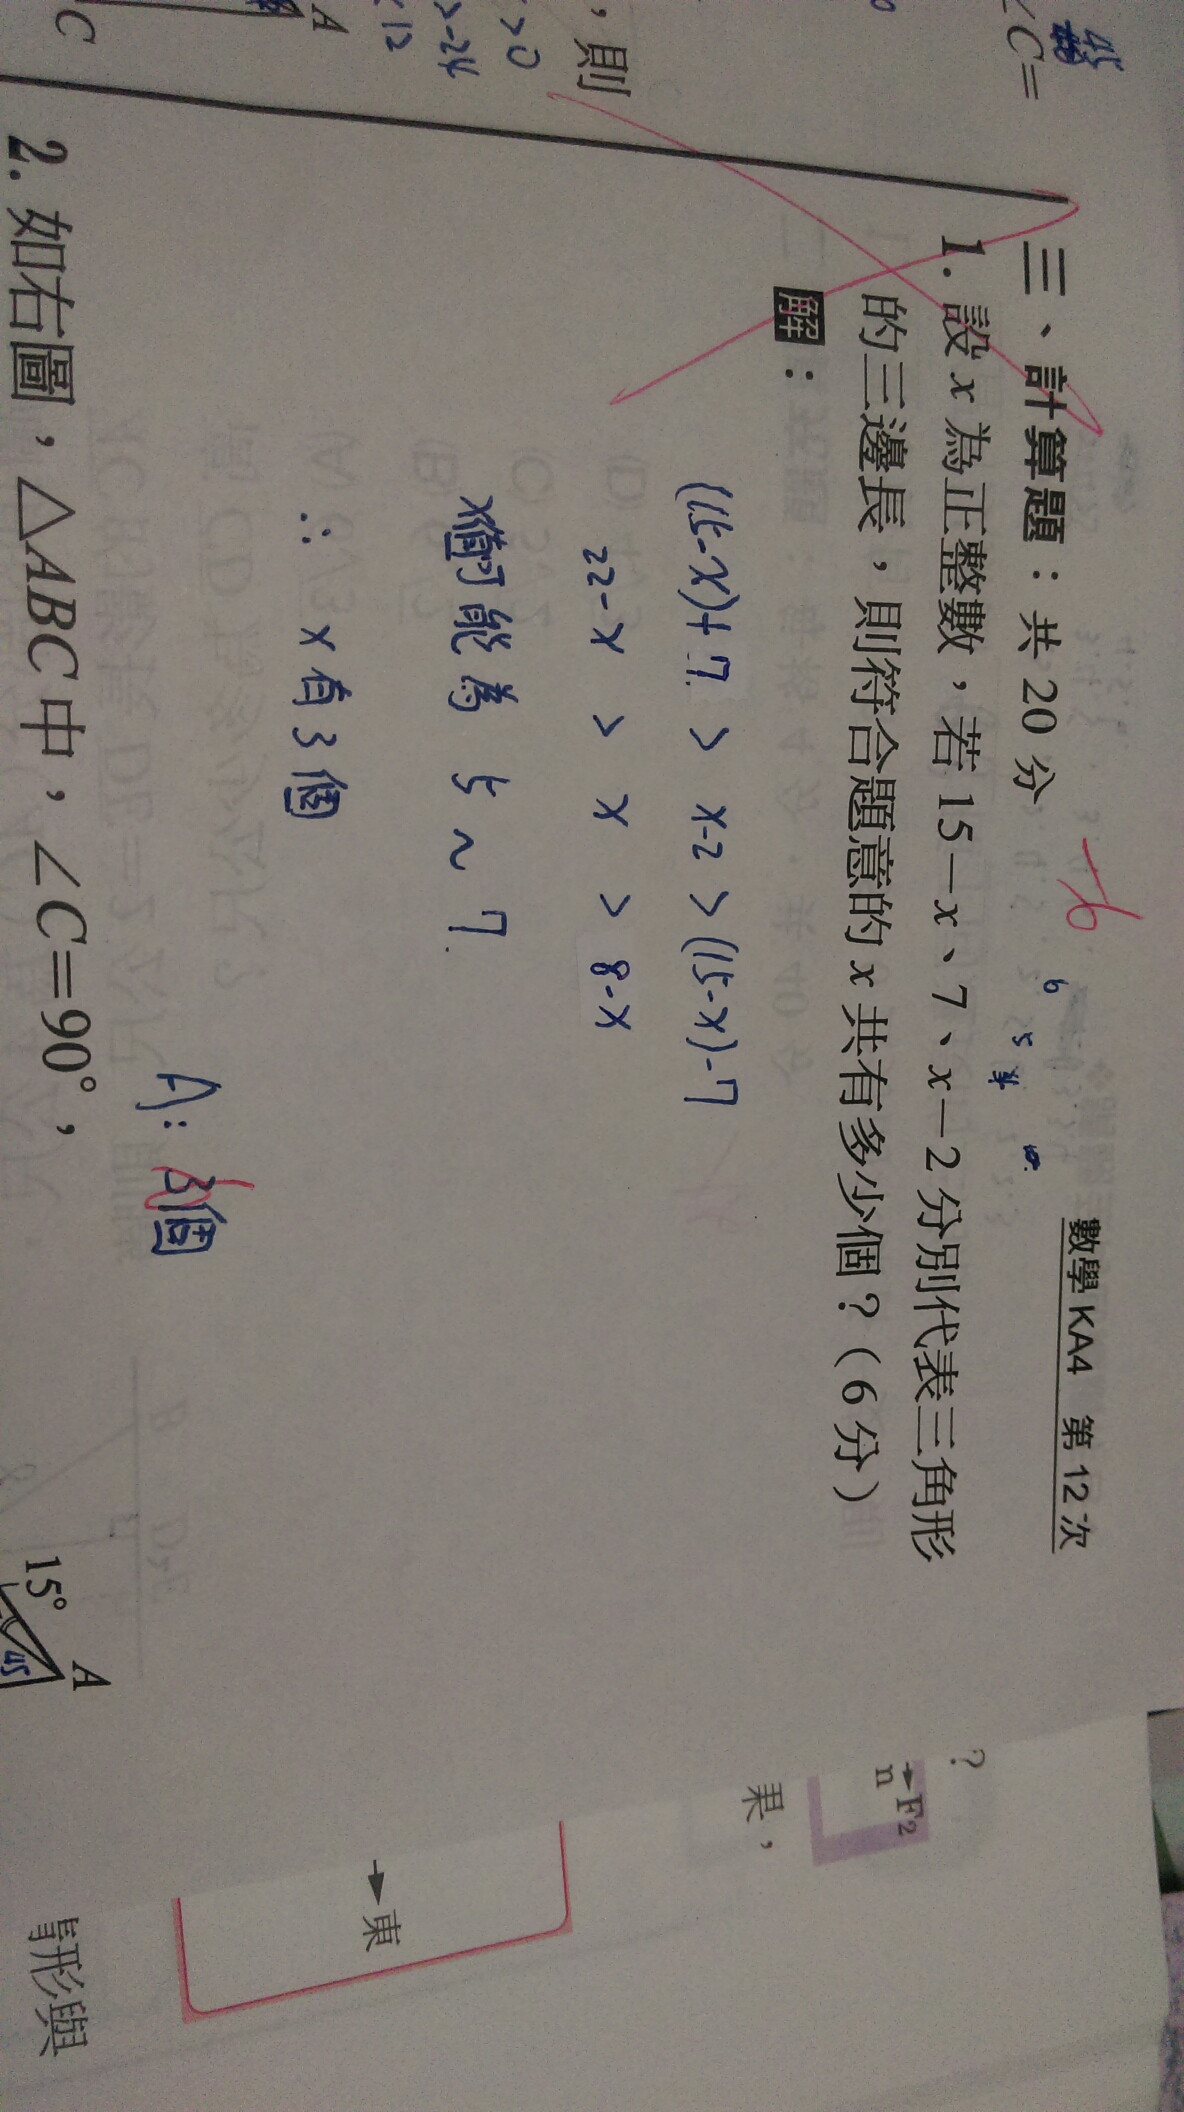 45
∠C=
，則
> 0
>-24
A
C
三、計算題：共 20 分
-6
數學 KA4　第 12 次
6
5
1. 設 x 為正整數，若 15－x、7、x－2 分別代表三角形
的三邊長，則符合題意的 x 共有多少個？（6 分）
解：
(15-x)+7 > x-2 > (15-x)-7
22-x > x > 8-x
可能為 5 ~ 7.
∴ x 有 3 個
A: 3個
2. 如右圖，△ABC 中，∠C＝90°，
15°
A
45
?
→F2
n
果，
→東
形與